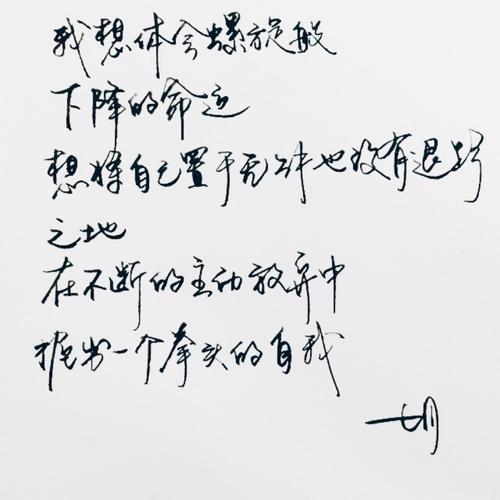 我想体会螺旋般
下降的命运
想将自己置于无也没有退路
之地
在不断的主动放弃中
出一个拳头的自我